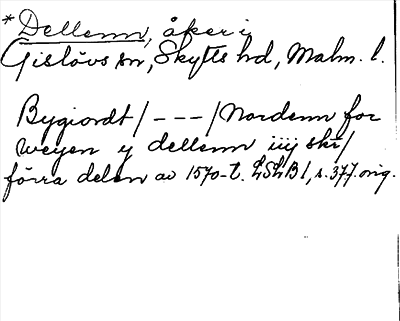 *Dellenn, åker i
Gislövs sn, Skytts hd, Malm. l.
Bygiordt / --- / Nordenn for
weyen y dellenn iiij skr/
förra delen av 1570-t. LSLB 1, s. 377. orig.